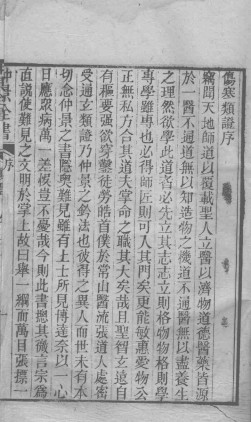 傷寒類證序
竊聞天地師道以覆載聖人立醫以濟物道德醫藥皆源
於一醫不通道無以知造物之機道不通醫無以盡養生
之理然欲學此道者必先立其志志立則格物物格則學
專學雖專也必得師匠則可入其門矣更能敏惠愛物公
正無私方合其道夫掌命之職其大矣哉且聖智玄遠自
有樞要强欲穿鑿徒勞皓首僕於常山醫流張道人處密
受通玄類證乃仲景之鈐法也彼得之異人而世未有本
切念仲景之書隱奥難見雖有上士所見博達奈以一心
日應衆病萬一差候豈不憂哉今則此書總其微言宗為
直說使難見之文明於掌上故曰舉一綱而萬目張標一
仲景全書 序